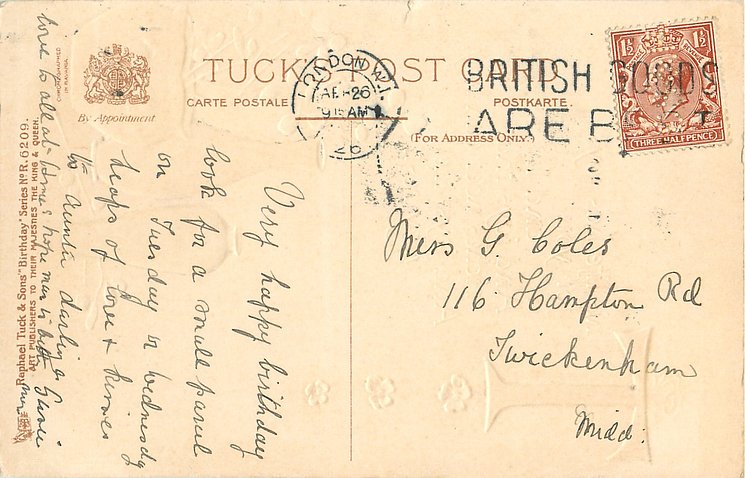 TUCK'S POST CARD
CARTE POSTALE
POSTKARTE
(FOR ADDRESS ONLY.)
By Appointment
CHROMOGRAPHED
IN BAVARIA
LONDON W.1
26
9 15 AM
26
BRITISH GOODS
ARE B T
1½ 1½
THREE HALFPENCE
Very happy birthday
look for a small parcel
on Tuesday or Wednesdy
heaps of love & kisses
to Auntie darling
love to all at home & hope mum is
Raphael Tuck & Sons' "Birthday" Series No R. 6209.
ART PUBLISHERS TO THEIR MAJESTIES THE KING & QUEEN.
G. Coles
116 Hampton Rd
Twickenham
Midd: